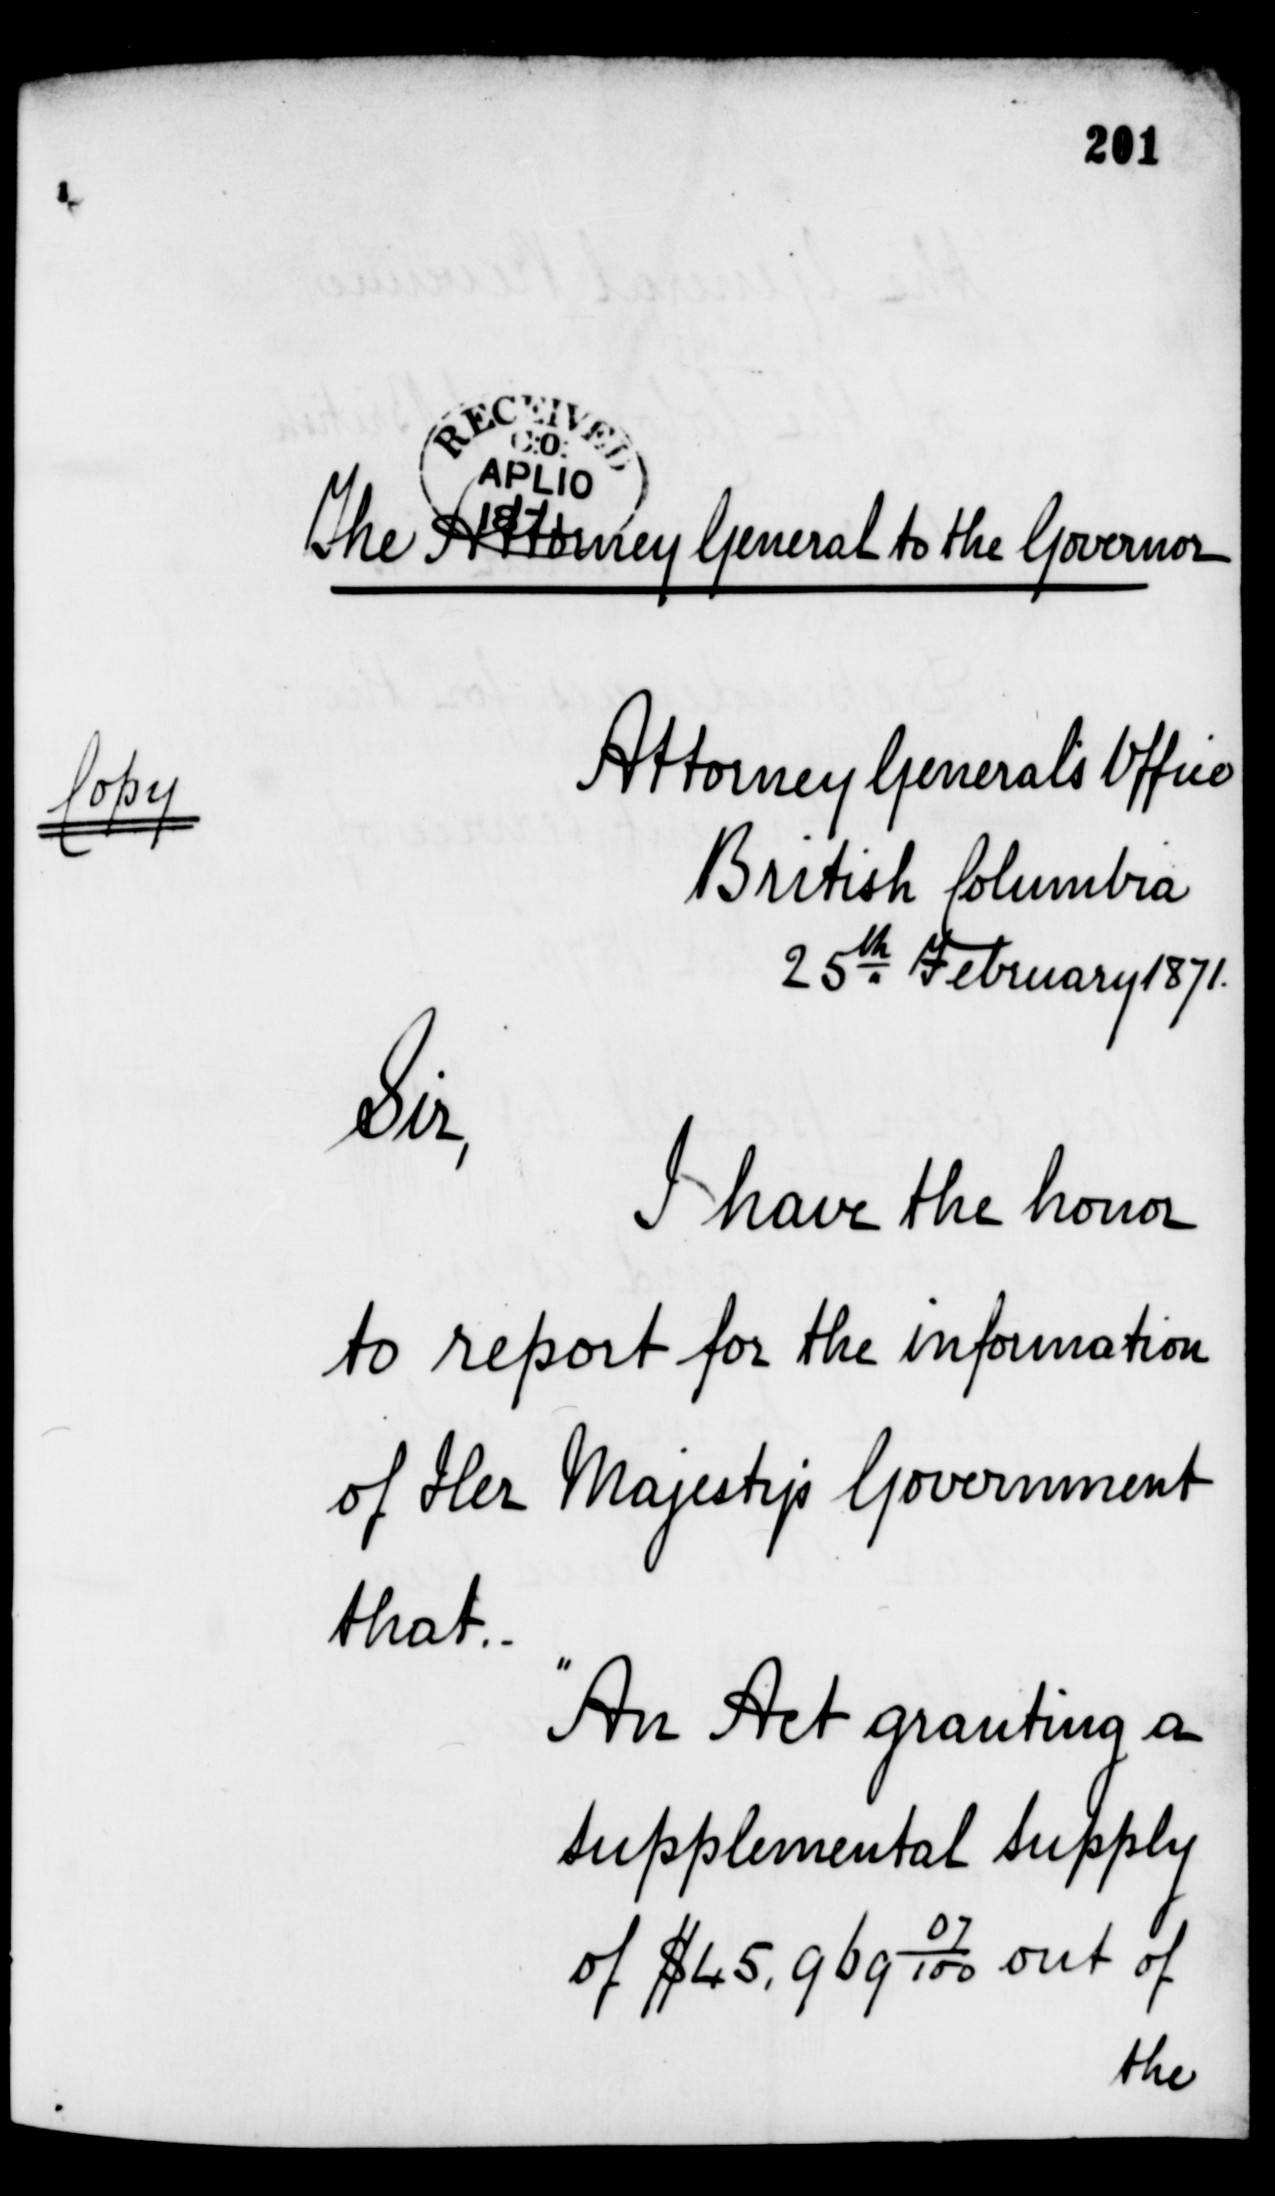 201
RECEIVED
C.O.
APL 10
1871
The Attorney General to the Governor
Copy
Attorney General's Office
British Columbia
25th February 1871.
Sir,
I have the honor
to report for the information
of Her Majesty's Government
that..
"An Act granting a
supplemental supply
of $45,969 07/100 out of
the